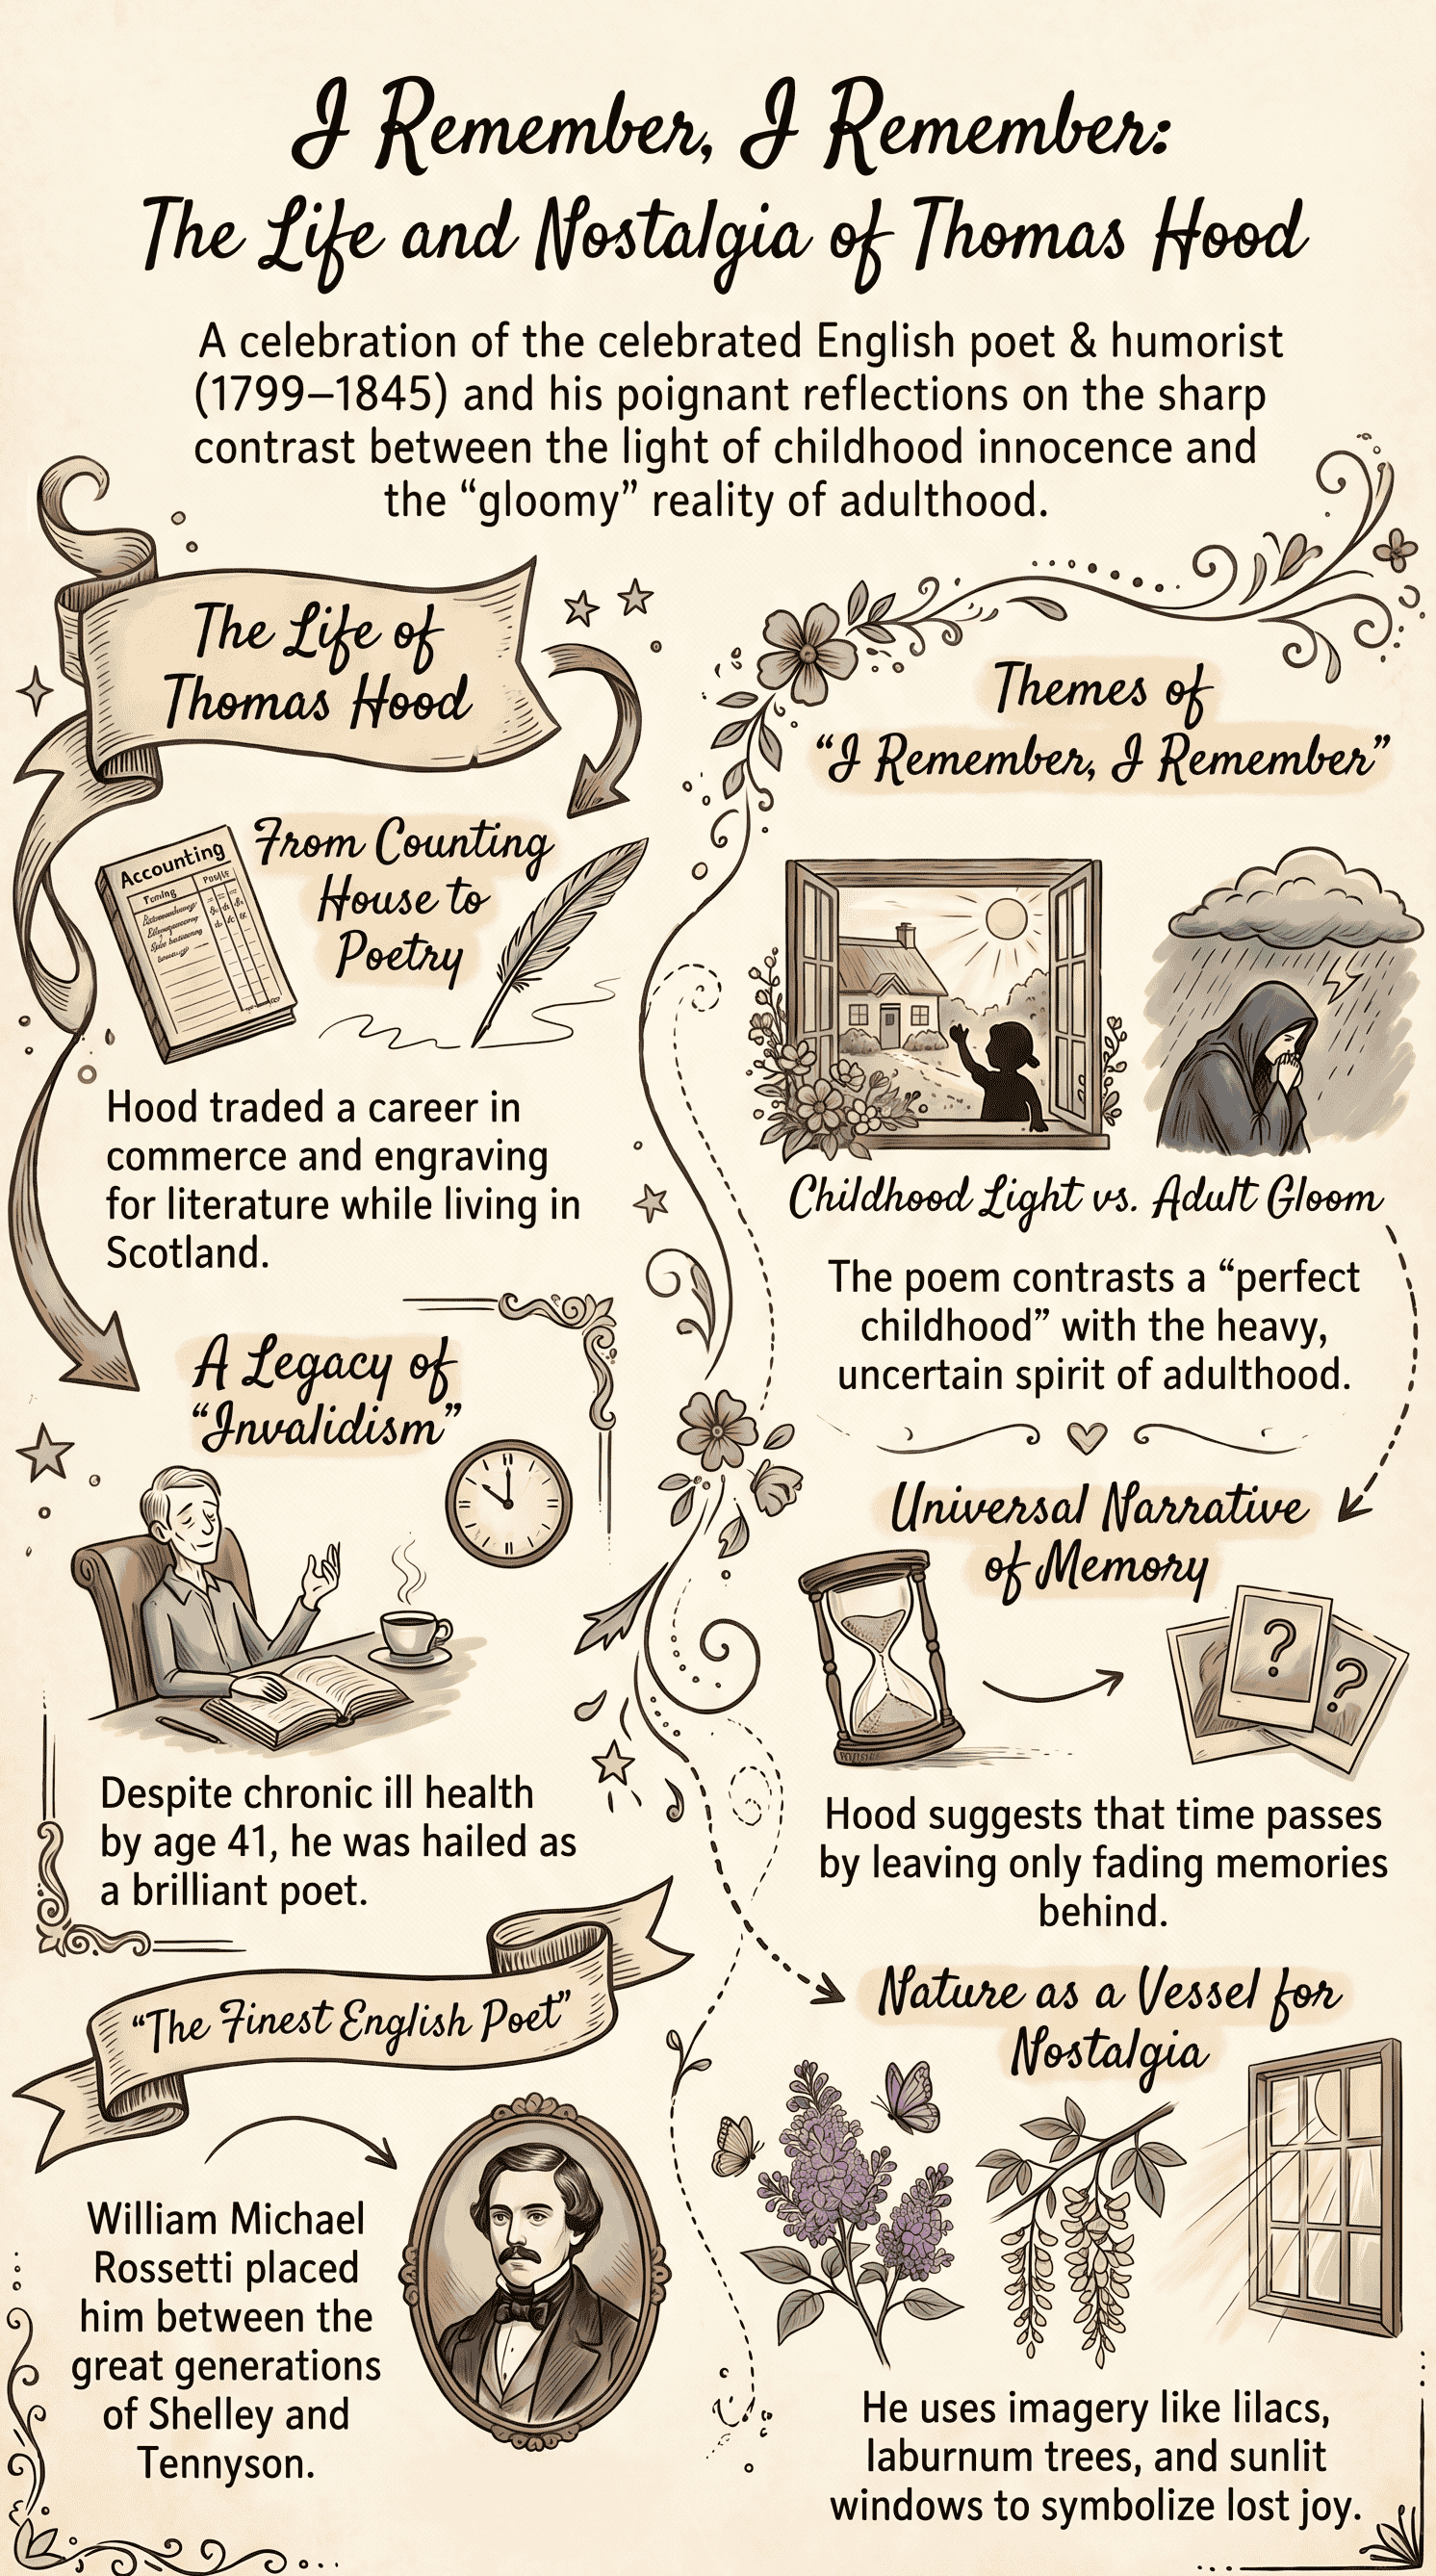 I Remember, I Remember:
The Life and Nostalgia of Thomas Hood
A celebration of the celebrated English poet & humorist
(1799–1845) and his poignant reflections on the sharp
contrast between the light of childhood innocence and
the “gloomy” reality of adulthood.
The Life of
Thomas Hood
From Counting
House to
Poetry
Accounting
Hood traded a career in
commerce and engraving
for literature while living in
Scotland.
A Legacy of
“Invalidism”
Despite chronic ill health
by age 41, he was hailed as
a brilliant poet.
“The Finest English Poet”
William Michael
Rossetti placed
him between the
great generations
of Shelley and
Tennyson.
Themes of
“I Remember, I Remember”
Childhood Light vs. Adult Gloom
The poem contrasts a “perfect
childhood” with the heavy,
uncertain spirit of adulthood.
Universal Narrative
of Memory
?
?
Hood suggests that time passes
by leaving only fading memories
behind.
Nature as a Vessel for
Nostalgia
He uses imagery like lilacs,
laburnum trees, and sunlit
windows to symbolize lost joy.